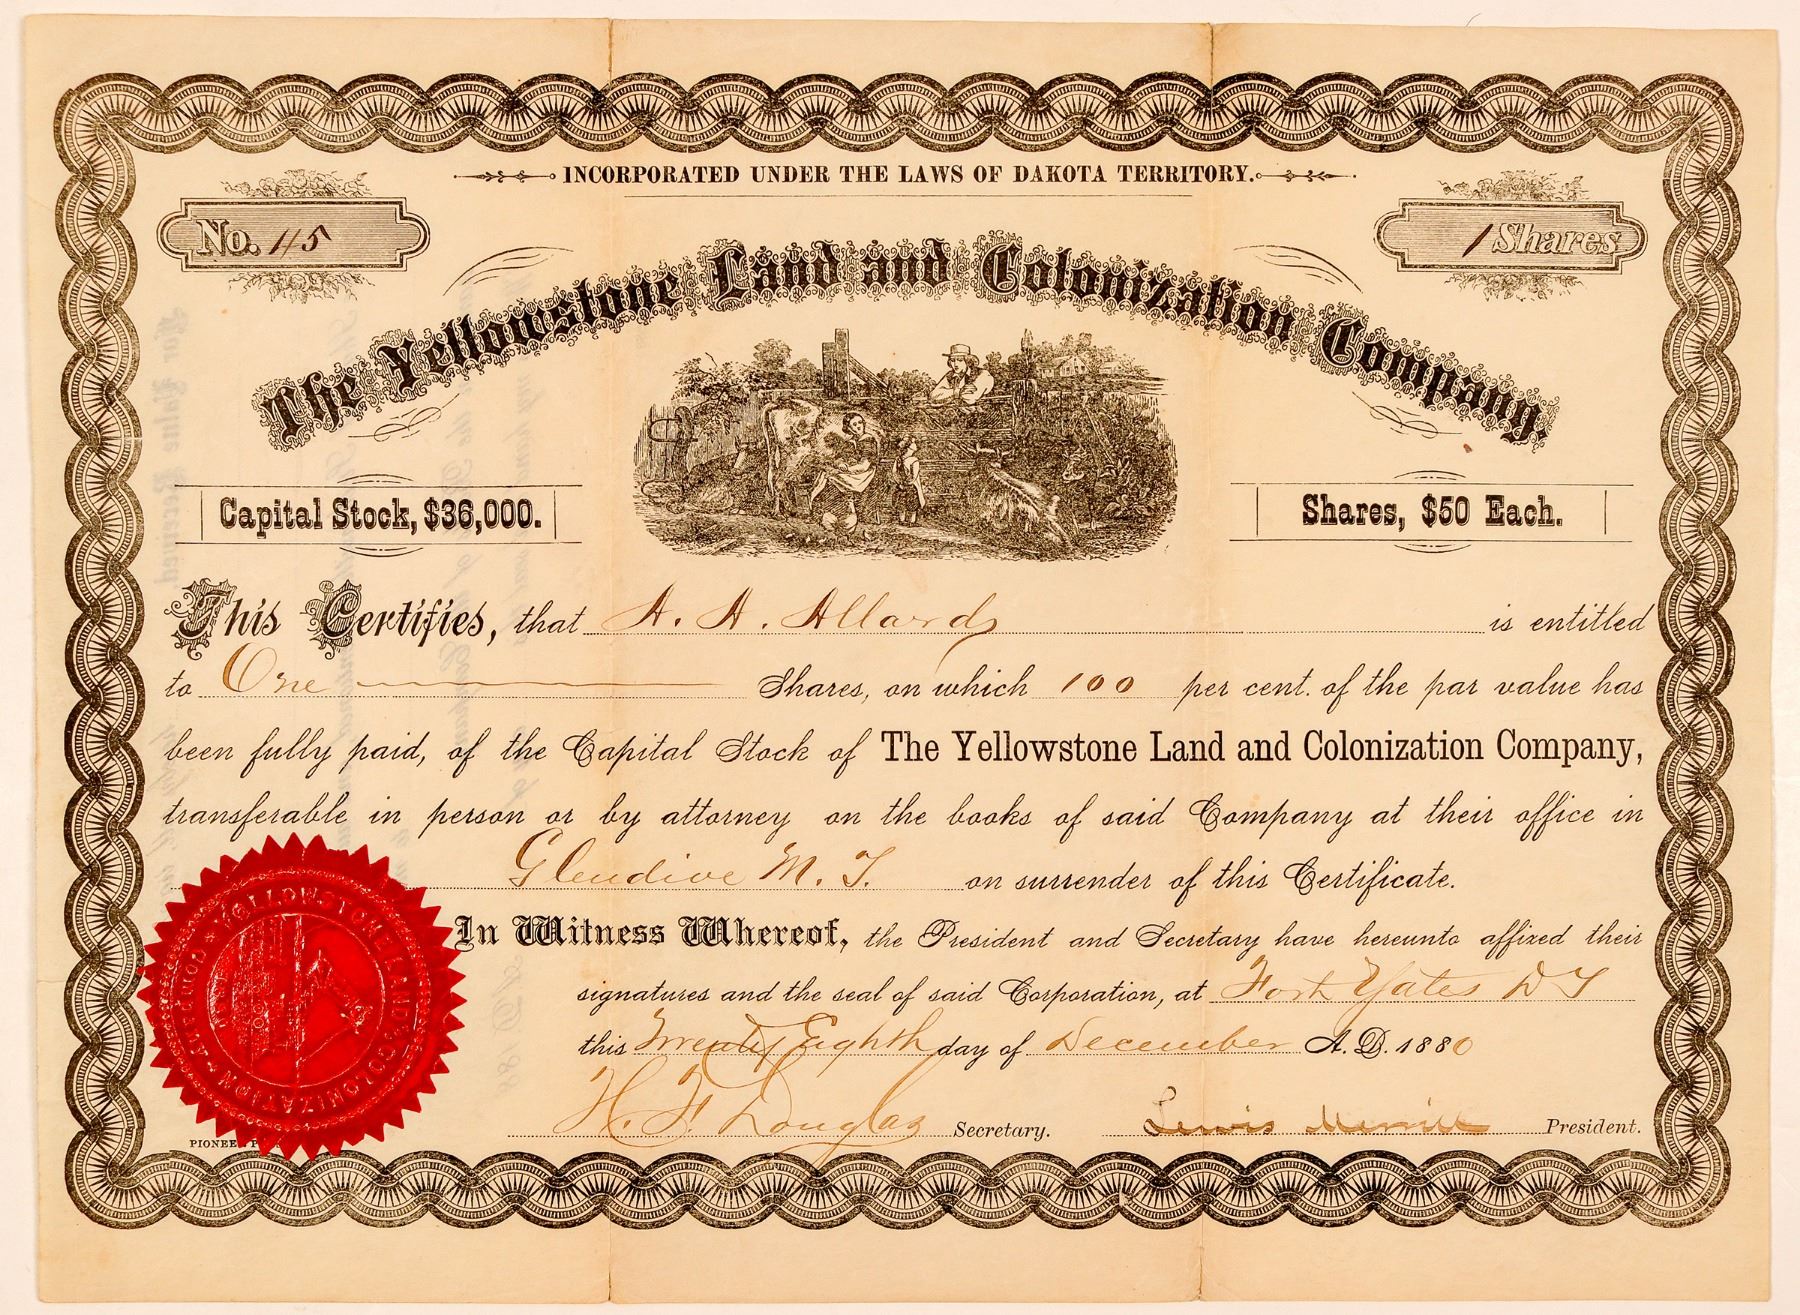 INCORPORATED UNDER THE LAWS OF DAKOTA TERRITORY.
No. 45
1 Shares
The Yellowstone Land and Colonization Company.
Capital Stock, $36,000.
Shares, $50 Each.
This Certifies, that A. A. Allard is entitled
to One Shares, on which 100 per cent. of the par value has
been fully paid, of the Capital Stock of The Yellowstone Land and Colonization Company,
transferable in person or by attorney on the books of said Company at their office in
Glendive M. T. on surrender of this Certificate.
In Witness Whereof, the President and Secretary have hereunto affixed their
signatures and the seal of said Corporation, at Fort Yates D T
this Twenty Eighth day of December A.D. 1880
H. F. Douglas Secretary. Lewis Merrill President.
YELLOWSTONE LAND & COLONIZATION COMPANY